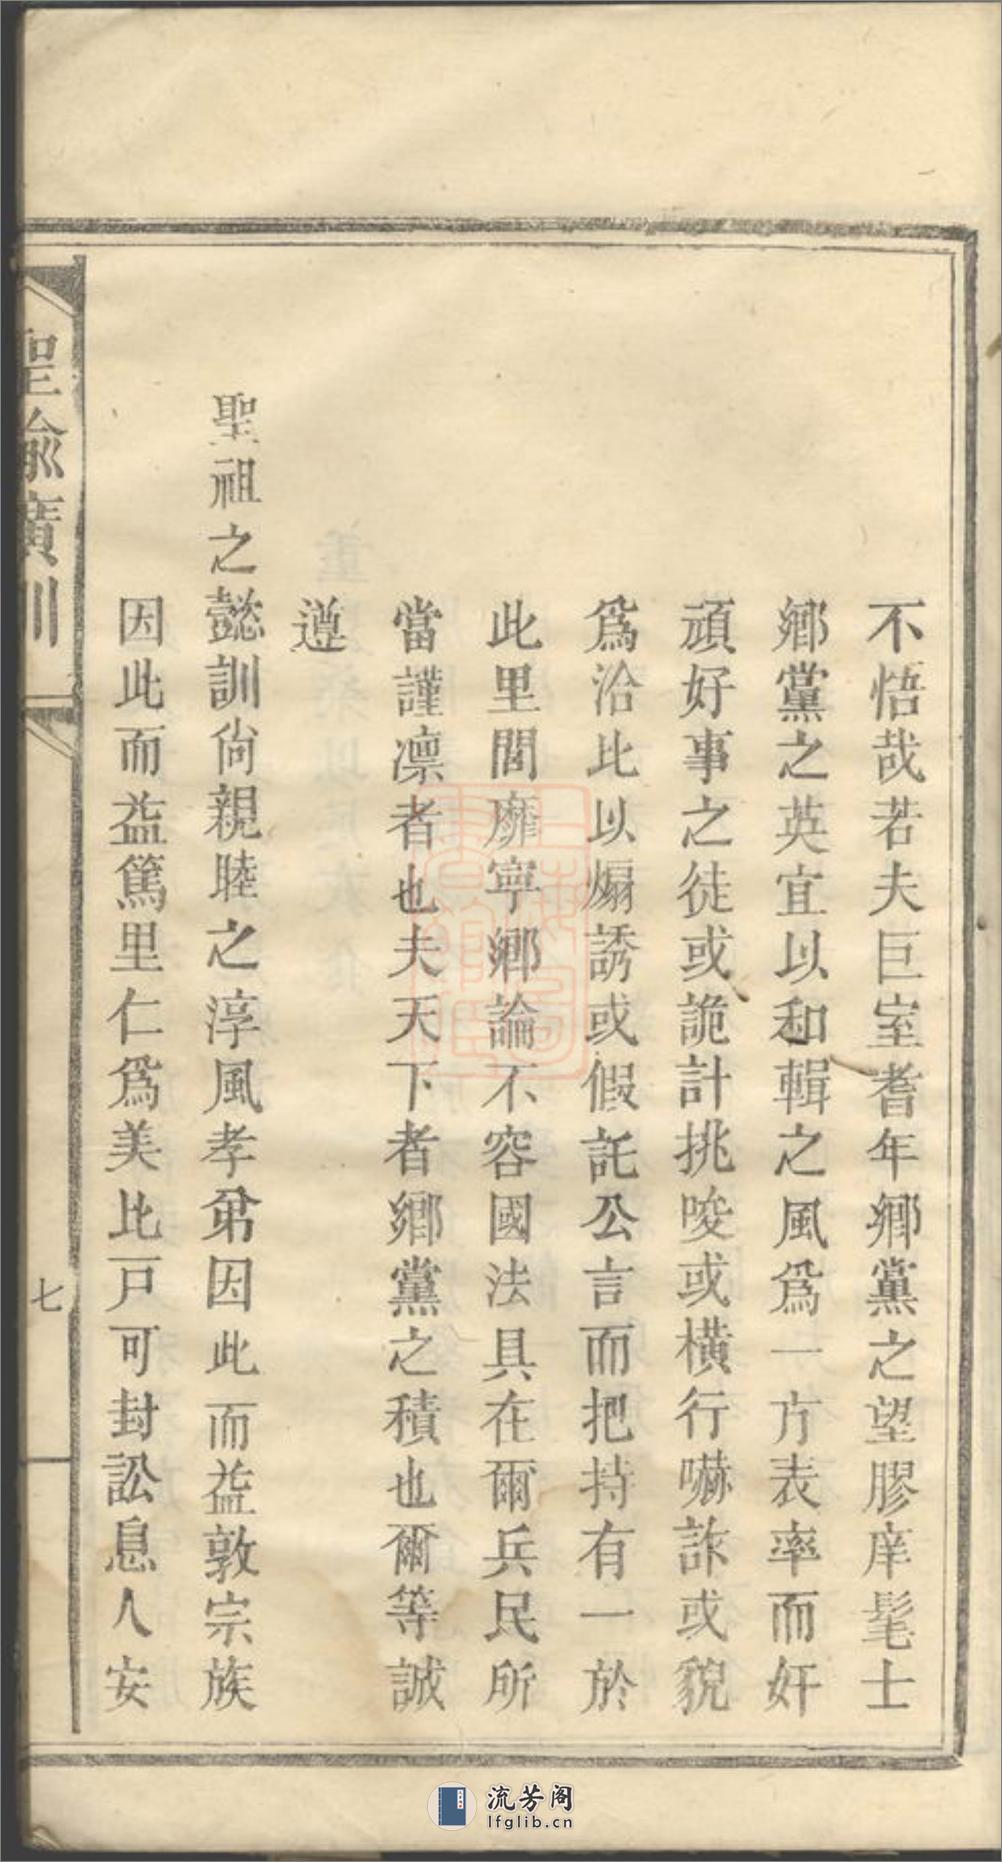 不悟哉若夫巨室耆年鄉黨之望膠庠髦士
鄉黨之英宜以和輯之風爲一方表率而奸
頑好事之徒或詭計挑唆或橫行嚇詐或貌
爲洽比以煽誘或假託公言而把持有一於
此里閭靡寧鄉論不容國法具在爾兵民所
當謹凛者也夫天下者鄉黨之積也爾等誠
遵
聖祖之懿訓尙親睦之淳風孝弟因此而益敦宗族
因此而益篤里仁爲美比戸可封訟息人安
聖諭廣訓
七
流芳阁
lfglib.cn